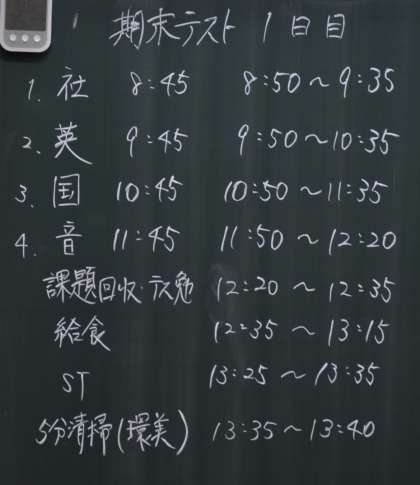 期末テスト 1日目
1. 社 8:45 8:50～9:35
2. 英 9:45 9:50～10:35
3. 国 10:45 10:50～11:35
4. 音 11:45 11:50～12:20
課題回収・テス勉 12:20～12:35
給食 12:35～13:15
ST 13:25～13:35
5分清掃(環美) 13:35～13:40